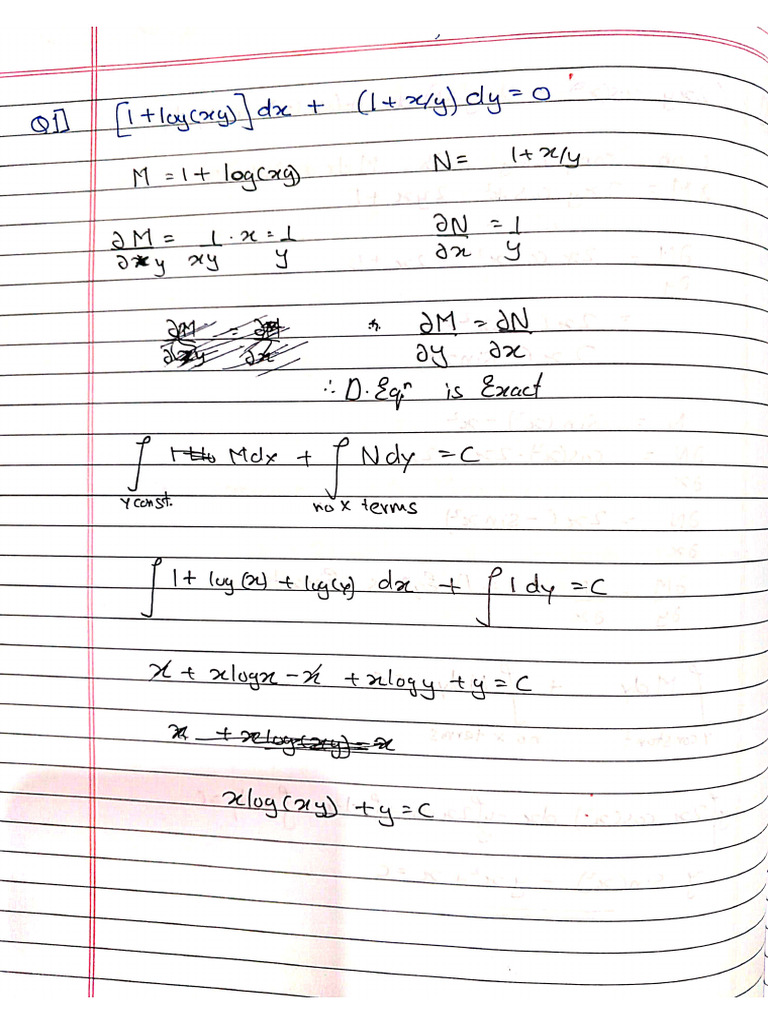 Q1] [1+log(xy)]dx + (1+x/y)dy=0
M = 1+ log(xy) N= 1+x/y
∂M/∂y = 1/xy · x = 1/y ∂N/∂x = 1/y
∂M/∂y = ∂N/∂x
∴ D.Eqⁿ is Exact
∫ Mdx + ∫ Ndy = C
y const. no x terms
∫ 1+ log(x) + log(y) dx + ∫ 1dy = C
x + xlogx - x + xlogy + y = C
x + xlog(xy) = x
xlog(xy) + y = C